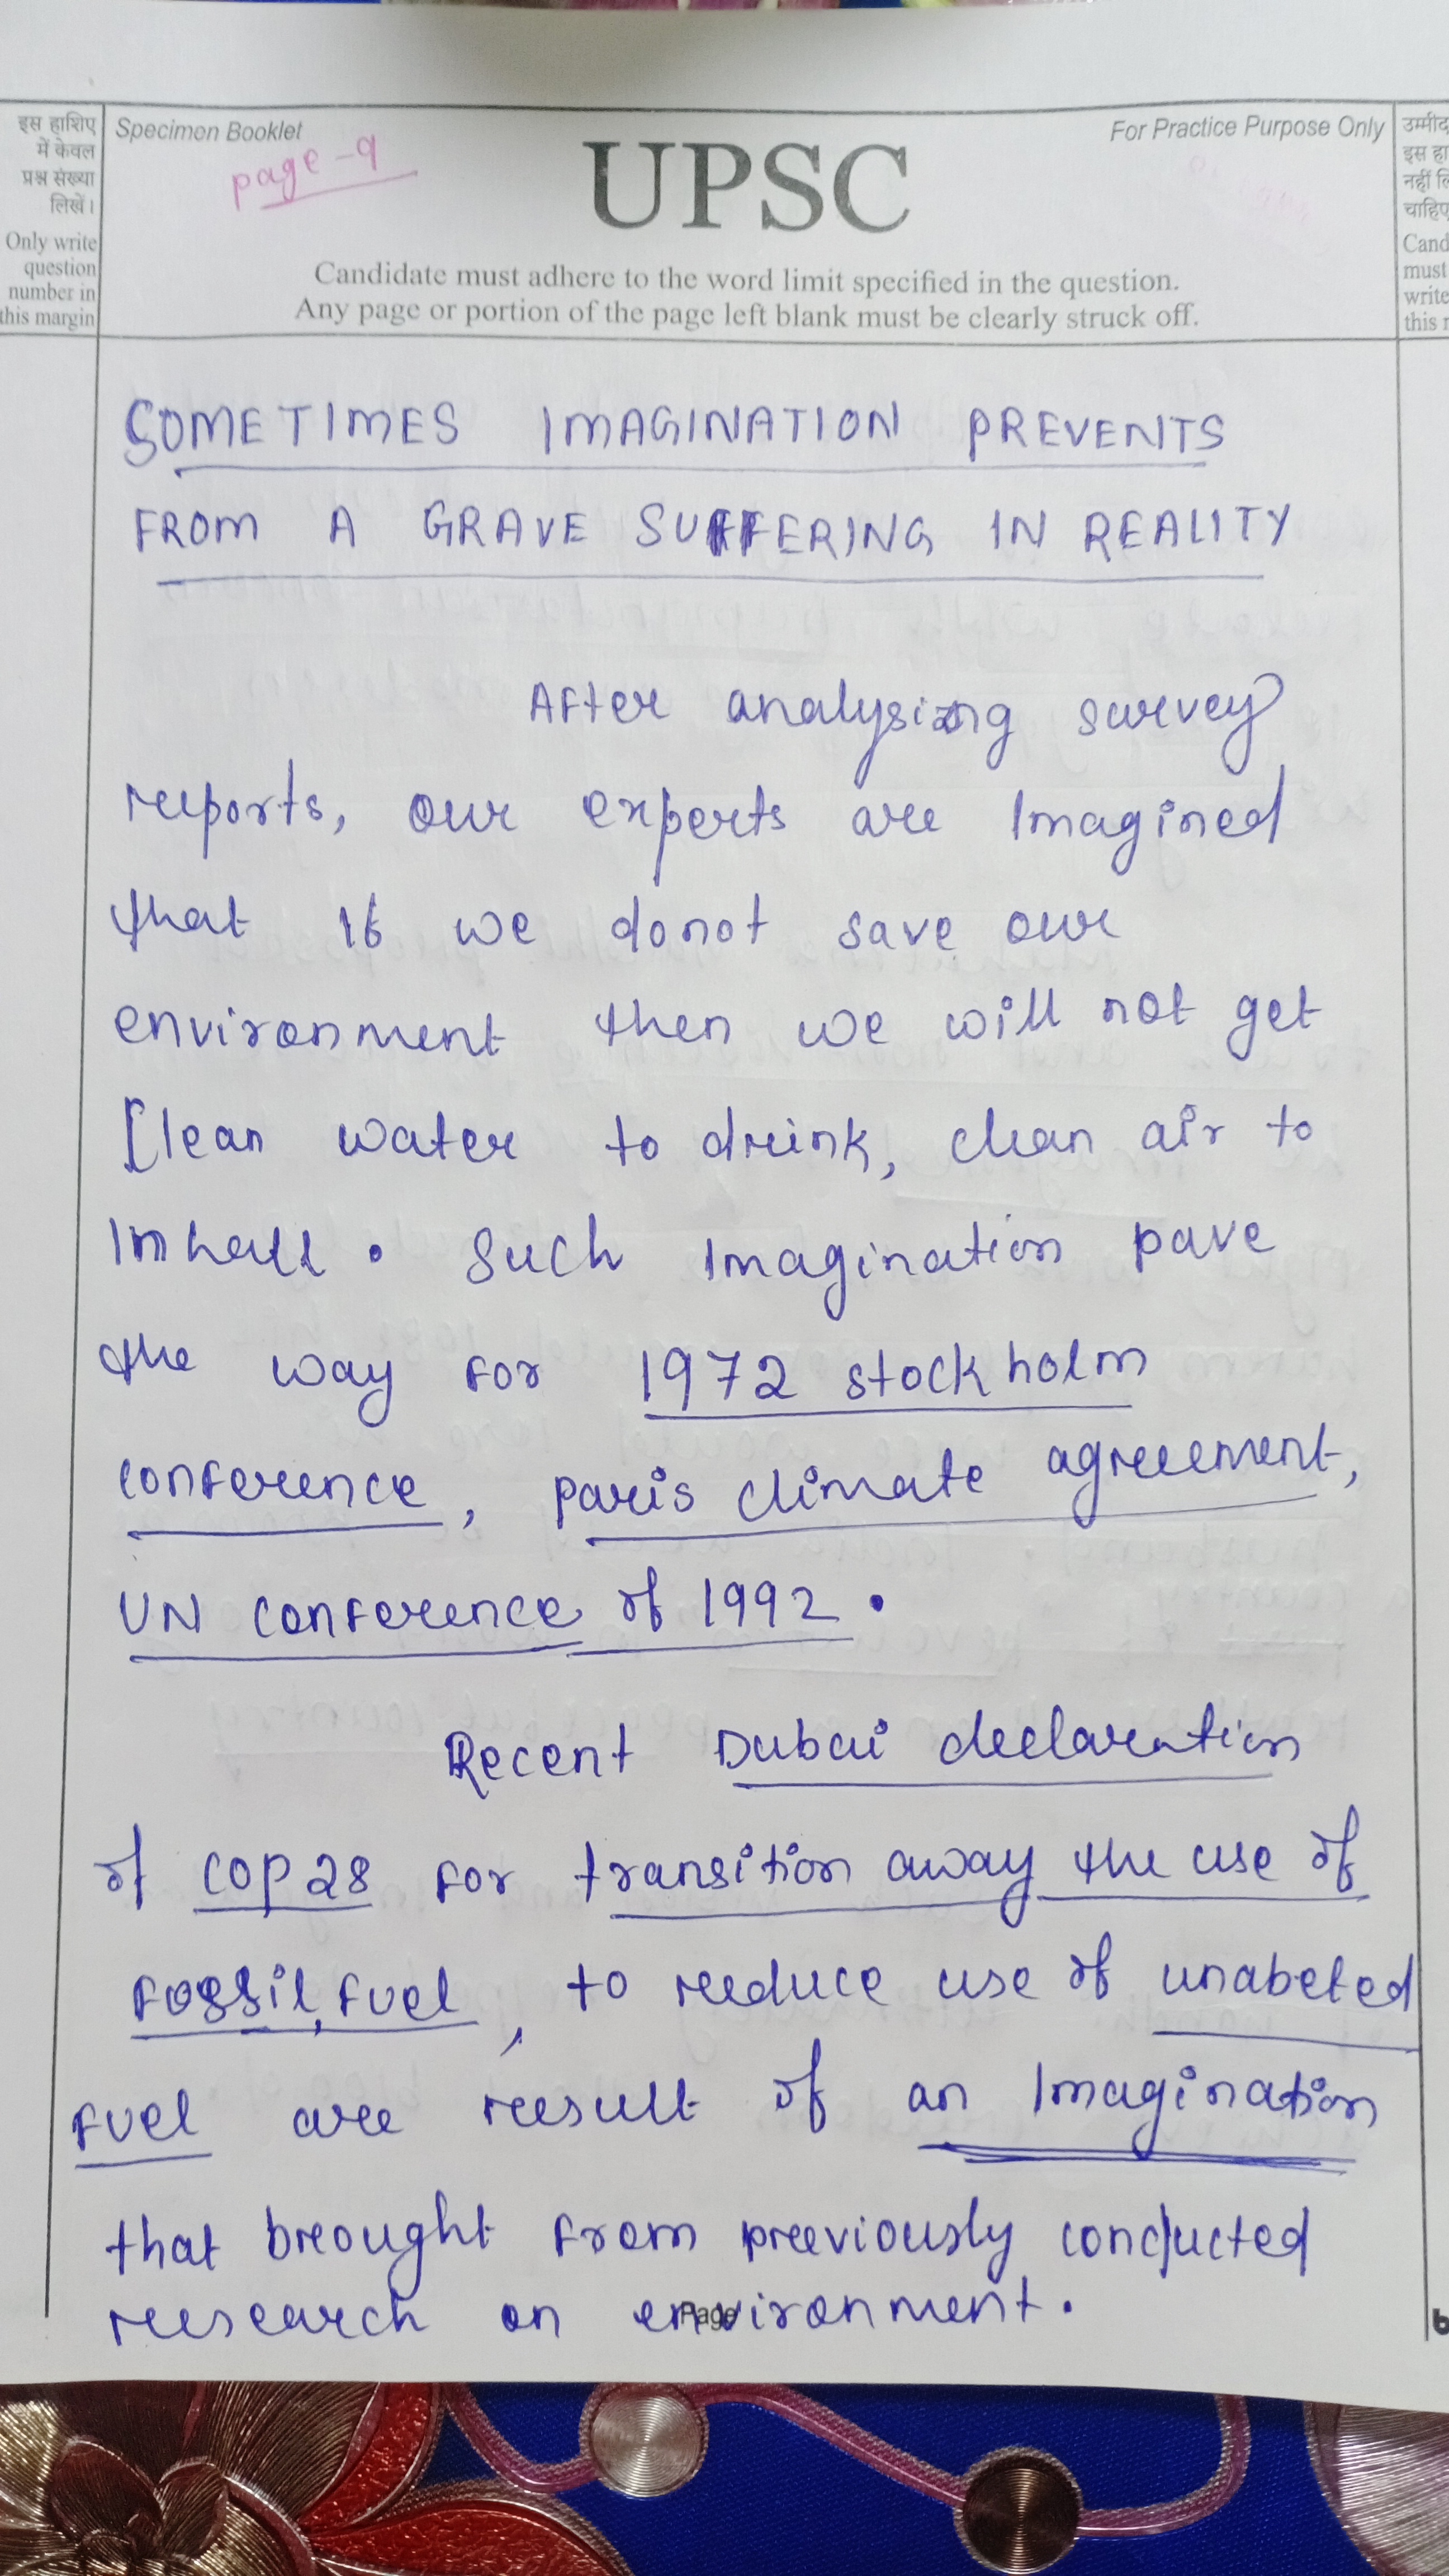 इस हाशिए
में केवल
प्रश्न संख्या
लिखें।
Only write
question
number in
this margin
Specimen Booklet
page-9
UPSC
For Practice Purpose Only
Candidate must adhere to the word limit specified in the question.
Any page or portion of the page left blank must be clearly struck off.
उम्मीद
इस हा
नहीं लि
चाहिए
Cand
must
write
this r
SOMETIMES IMAGINATION PREVENTS
FROM A GRAVE SUFFERING IN REALITY
After analysizng survey
reports, our experts are Imagined
that if we donot save our
environment then we will not get
Clean water to drink, clean air to
Inhall. Such Imagination pave
the way for 1972 stockholm
conference, paris climate agreement,
UN conference of 1992.
Recent Dubai declaration
of COP28 for transition away the use of
fossil fuel, to reduce use of unabeted
fuel are result of an Imagination
that brought from previously conducted
research on environment.
Page